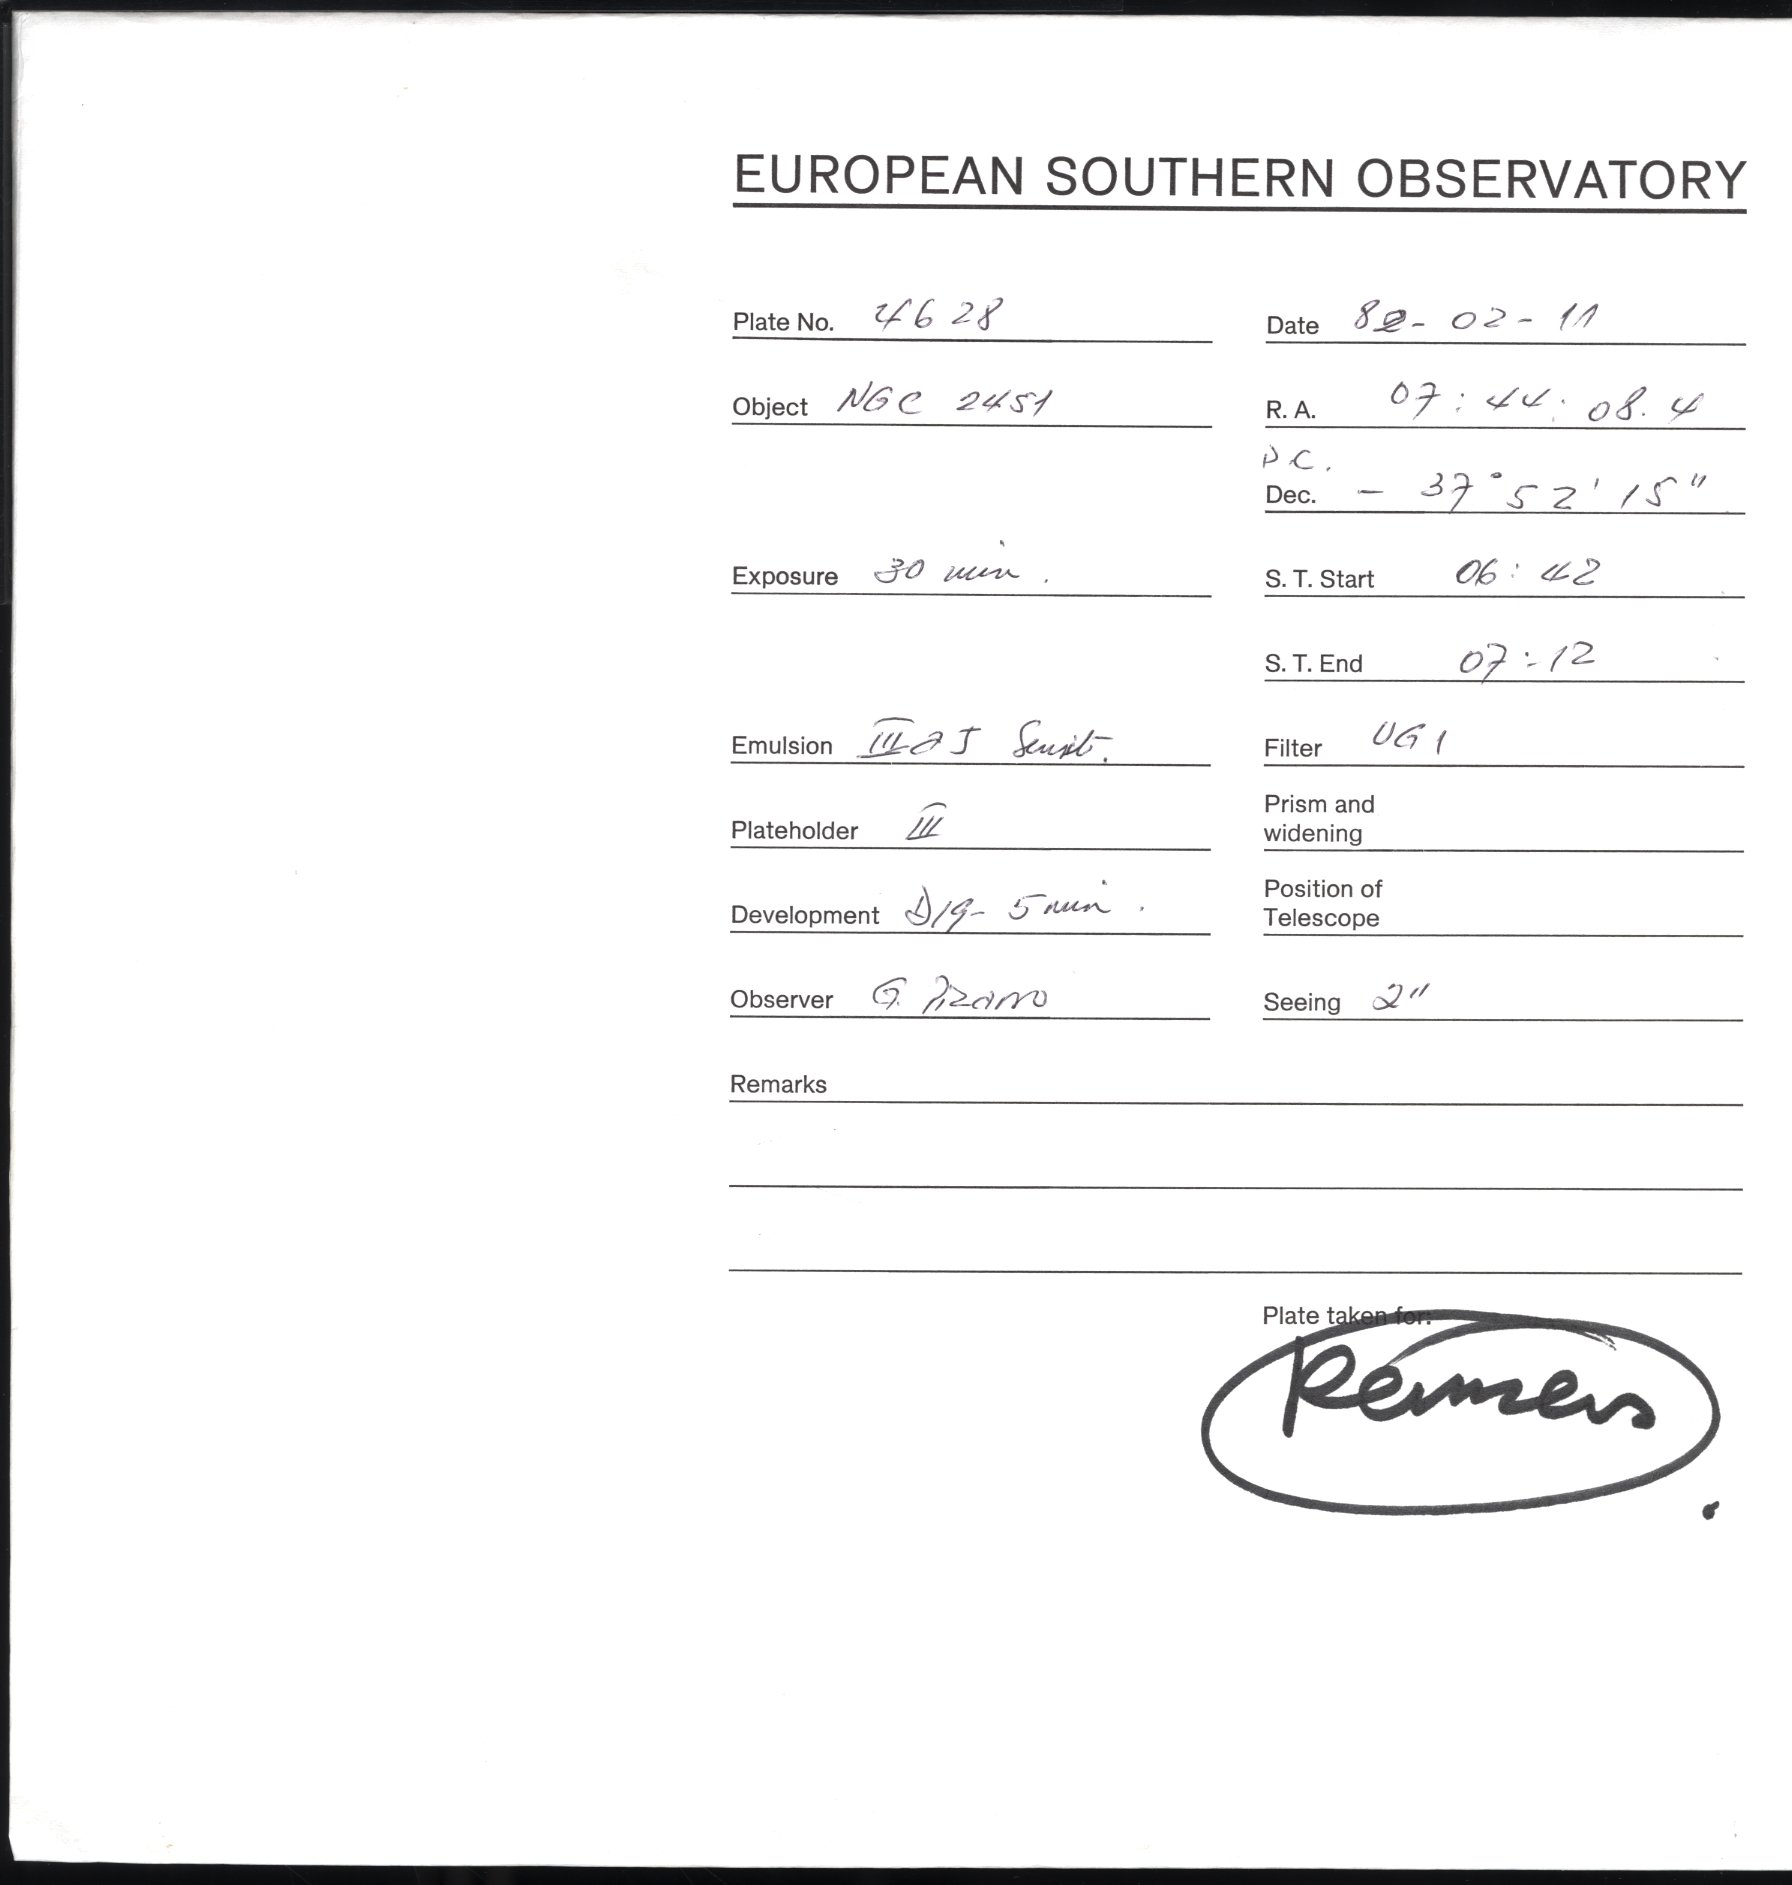 EUROPEAN SOUTHERN OBSERVATORY
Plate No. 4628 Date 82-02-11
Object NGC 2451 R. A. 07:44:08.4
P C.
Dec. - 37° 52' 15"
Exposure 30 min. S. T. Start 06:42
S. T. End 07:12
Emulsion IIIaJ Sensit. Filter UG1
Prism and
widening
Plateholder III
Position of
Telescope
Development D19- 5 min.
Observer G. Pizarro Seeing 2"
Remarks
Plate taken for:
Reimers